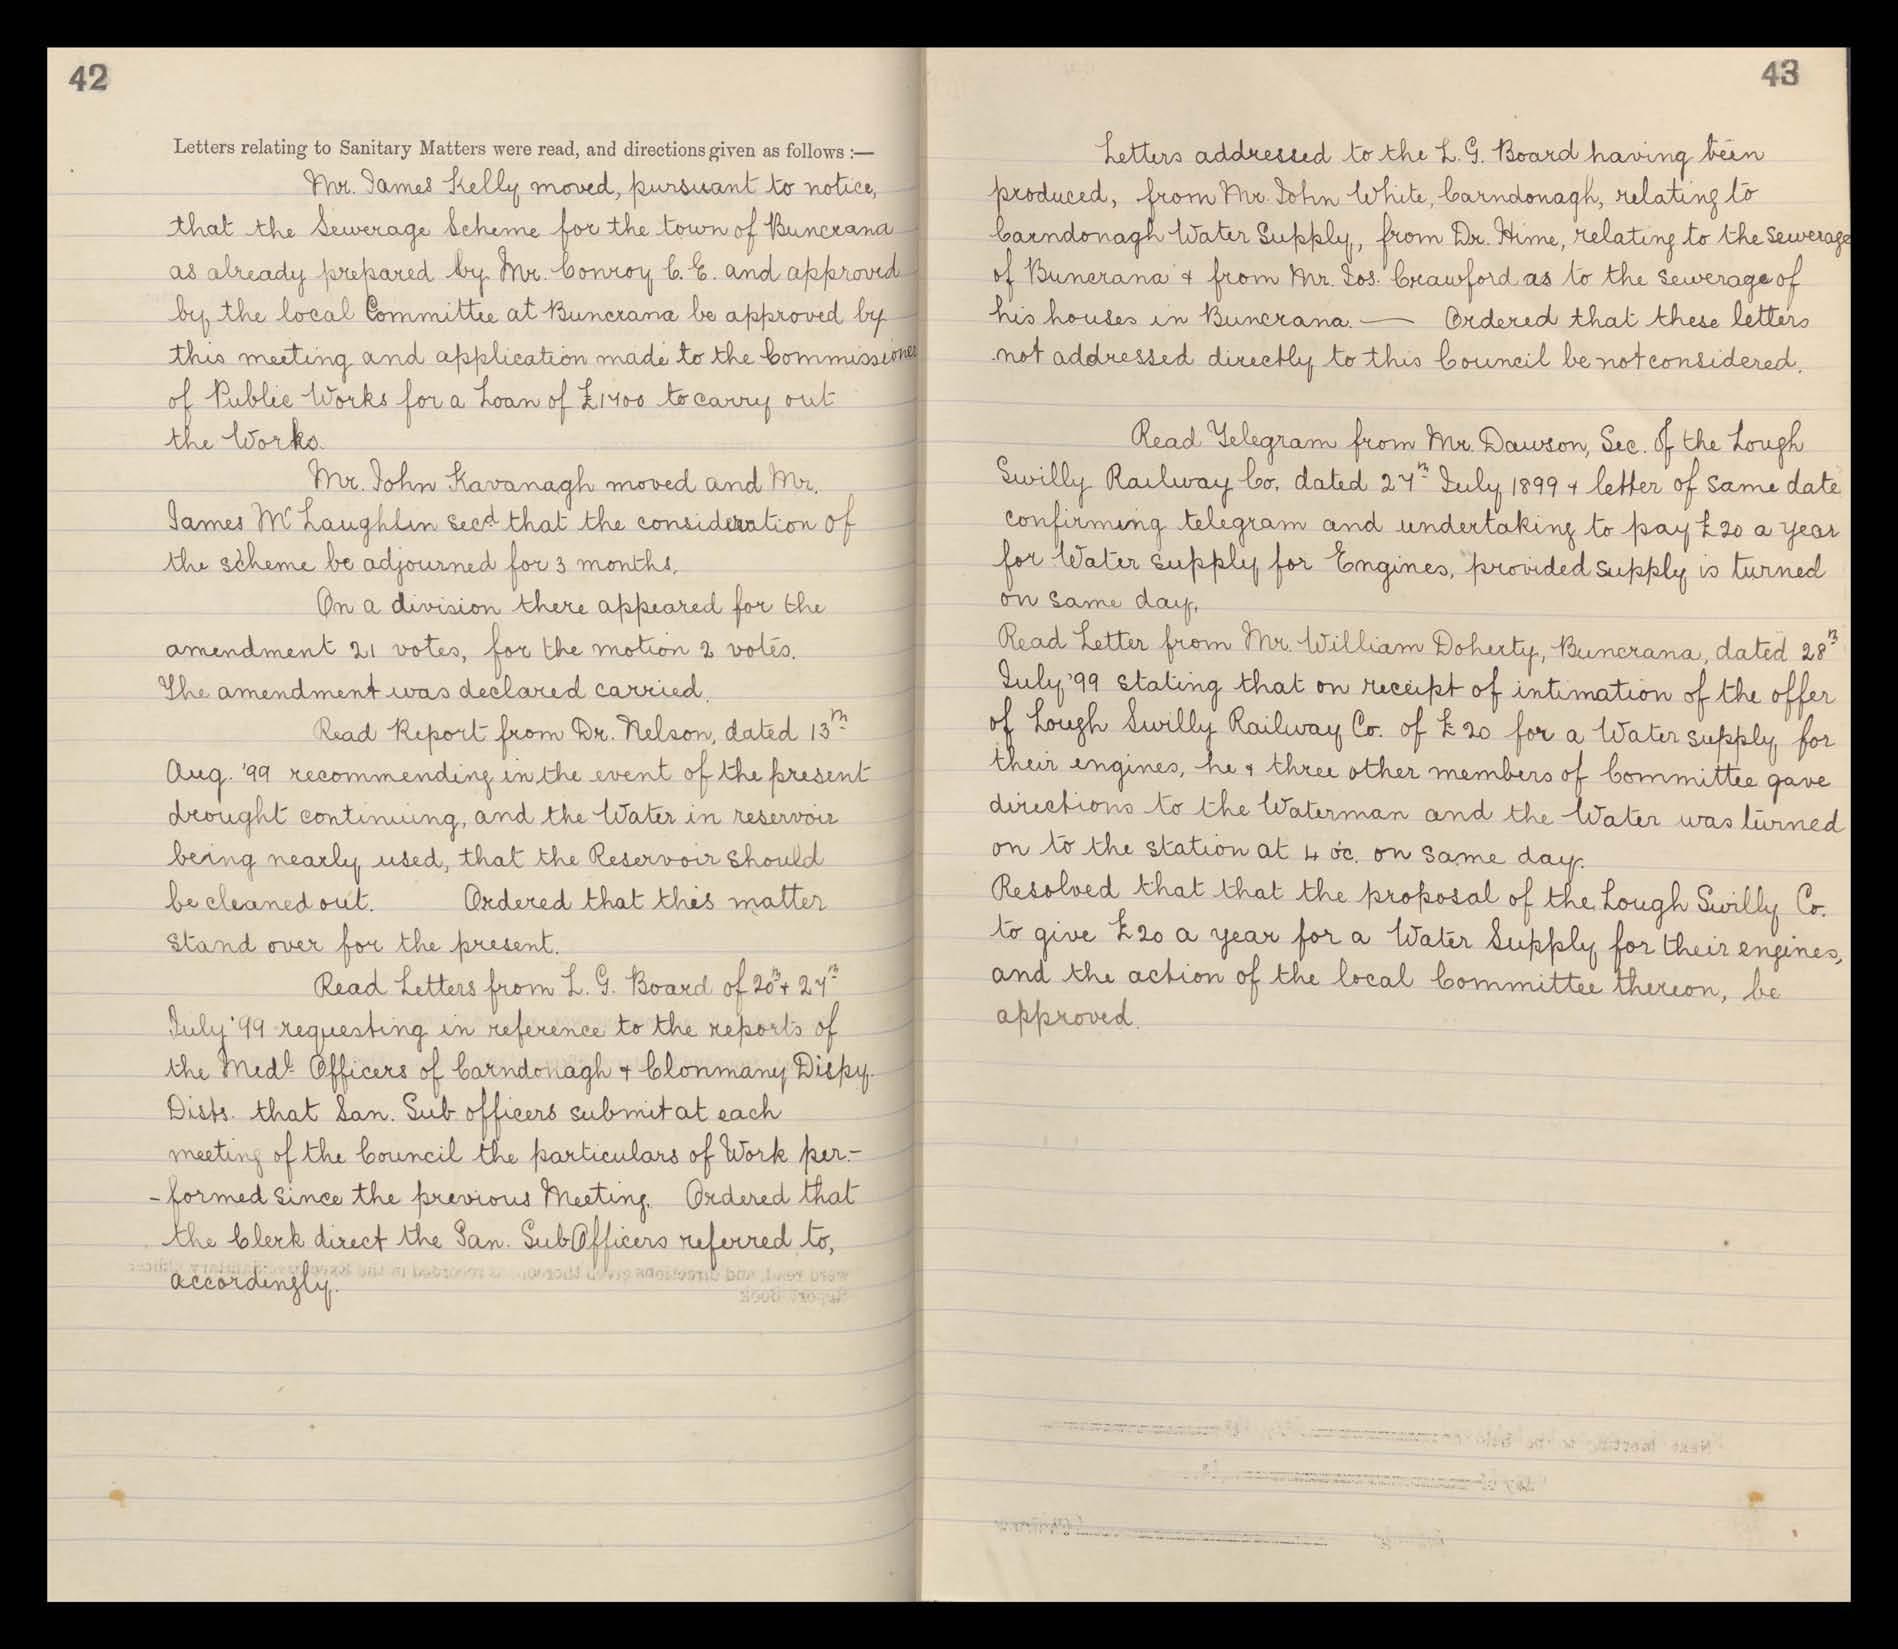 42
Letters relating to Sanitary Matters were read, and directions given as follows :—
Mr. James Kelly moved, pursuant to notice,
that the Sewerage Scheme for the town of Buncrana
as already prepared by Mr. Conroy C.E. and approved
by the local Committee at Buncrana be approved by
this meeting and application made to the Commissioners
of Public Works for a Loan of £1700 to carry out
the Works.
Mr. John Kavanagh moved and Mr.
James McLaughlin secd. that the consideration of
the scheme be adjourned for 3 months.
On a division there appeared for the
amendment 21 votes, for the motion 2 votes.
The amendment was declared carried.
Read Report from Dr. Nelson, dated 13th
Aug. '99 recommending in the event of the present
drought continuing, and the Water in reservoir
being nearly used, that the Reservoir should
be cleaned out. Ordered that this matter
stand over for the present.
Read Letters from L. G. Board of 20th + 27th
July '99 requesting in reference to the reports of
the Medl. Officers of Carndonagh + Clonmany Dispy.
Dists. that San. Sub officers submit at each
meeting of the Council the particulars of Work per-
-formed since the previous Meeting. Ordered that
the Clerk direct the San. Sub Officers referred to,
accordingly.
43
Letters addressed to the L. G. Board having been
produced, from Mr. John White, Carndonagh, relating to
Carndonagh Water Supply, from Dr. Hime, relating to the sewerage
of Buncrana + from Mr. Jos. Crawford as to the sewerage of
his houses in Buncrana. — Ordered that these letters
not addressed directly to this Council be not considered.
Read Telegram from Mr. Dawson, Sec. of the Lough
Swilly Railway Co. dated 27th July 1899 + letter of same date
confirming telegram and undertaking to pay £20 a year
for Water supply for Engines, provided supply is turned
on same day.
Read Letter from Mr. William Doherty, Buncrana, dated 28th
July '99 stating that on receipt of intimation of the offer
of Lough Swilly Railway Co. of £20 for a Water supply for
their engines, he + three other members of Committee gave
directions to the Waterman and the Water was turned
on to the station at 4 oc. on same day.
Resolved that that the proposal of the Lough Swilly Co.
to give £20 a year for a Water Supply for their engines,
and the action of the local Committee thereon, be
approved.